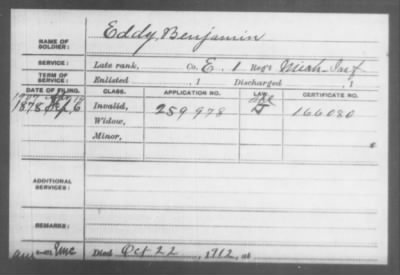 NAME OF SOLDIER: Eddy, Benjamin
SERVICE: Late rank, Co. E. 1 Reg't Mich. Inf
TERM OF SERVICE: Enlisted , 1 Discharged , 1
DATE OF FILING. CLASS. APPLICATION NO. LAW. CERTIFICATE NO.
1878 6 Invalid, 259978 166080
Widow,
Minor,
ADDITIONAL SERVICES:
REMARKS:
Died Oct 22, 1912, at